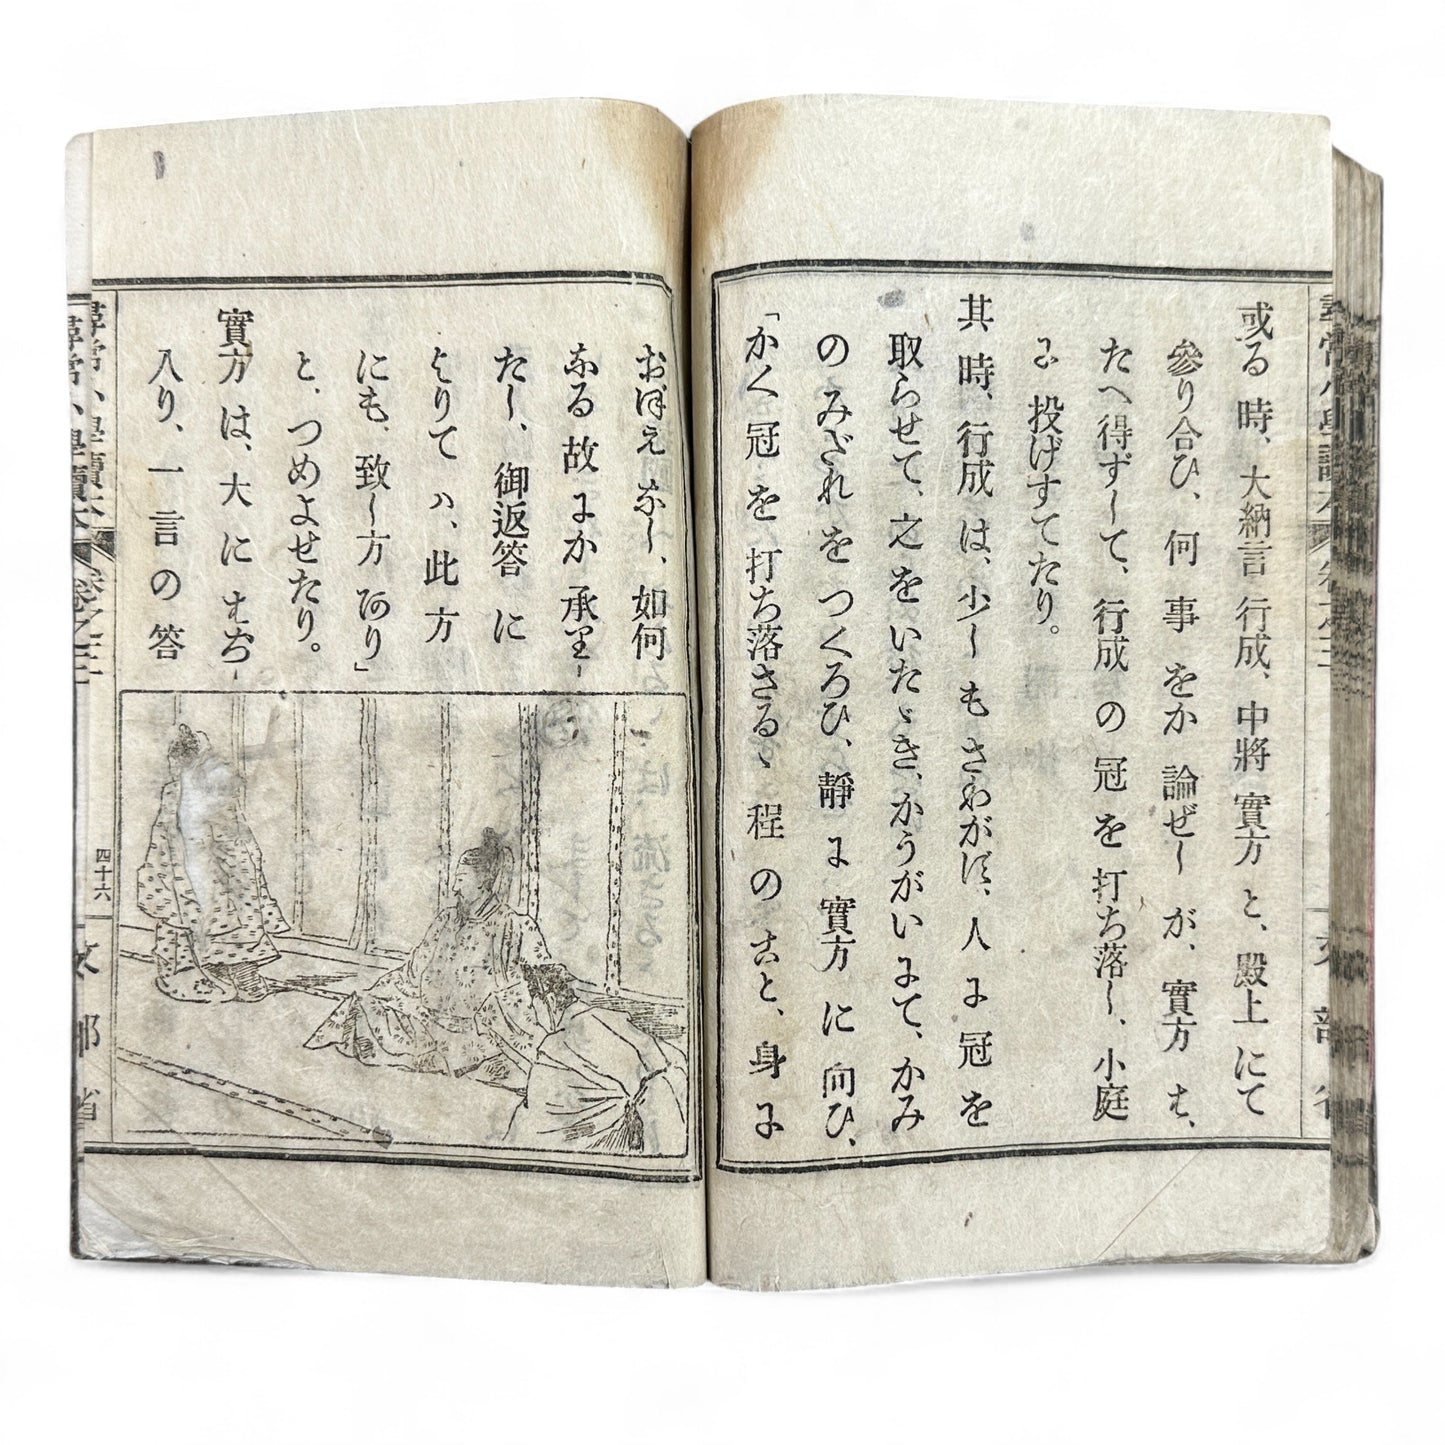 或る時、大納言行成、中將實方と、殿上にて
參り合ひ、何事をか論ぜしが、實方は、
たへ得ずして、行成の冠を打ち落し、小庭
に投げすてたり。
其時、行成は、少しもさわがず、人に冠を
取らせて、之をいたゞき、かうがいにて、かみ
のみだれをつくろひ、靜に實方に向ひ、
「かく冠を打ち落さるゝ程のこと、身に
おぼえなし、如何
なる故にか承りし
たし、御返答に
よりては、此方
にも、致し方あり」
と、つめよせたり。
實方は、大にはぢ
入り、一言の答
尋常小學讀本
卷之三
四十六
文部省